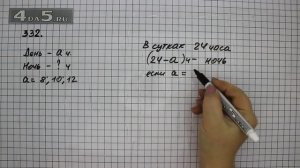 4DA5.RU
332.
День - а ч.
Ночь - ? ч
а = 8, 10, 12
В сутках 24 часа
(24-а) ч - ночь
если а =